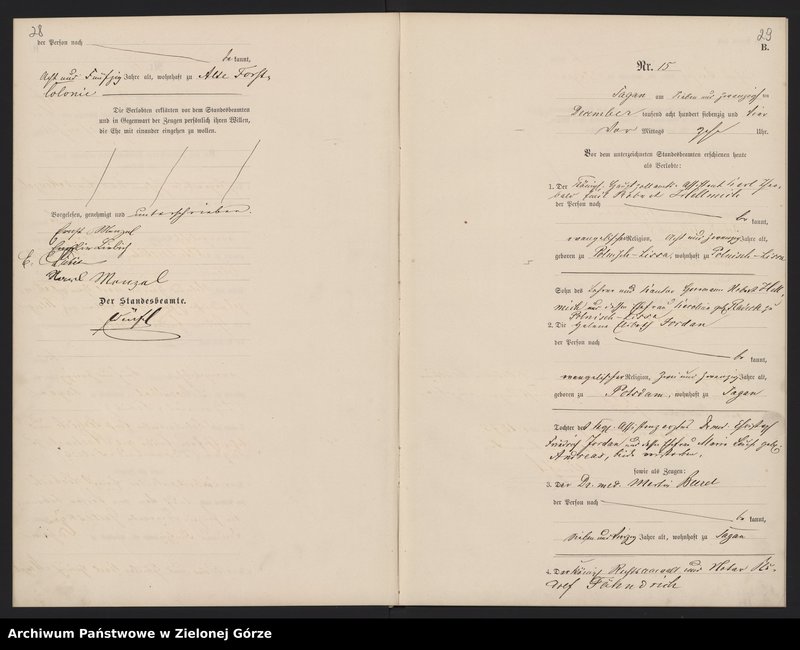 28
der Person nach
be kannt,
Acht und Fünfzig Jahre alt, wohnhaft zu Alte Forst-
colonie
Die Verlobten erklärten vor dem Standesbeamten
und in Gegenwart der Zeugen persönlich ihren Willen,
die Ehe mit einander eingehen zu wollen.
Vorgelesen, genehmigt und unterschrieben.
Ernst Menzel
Liebich
Menzel
Der Standesbeamte.
29
B.
Nr. 15
Sagan am Sieben und zwanzigsten
December tausend acht hundert siebenzig und vier
Vor Mittags zehn Uhr.
Vor dem unterzeichneten Standesbeamten erschienen heute
als Verlobte:
1. Der Königl. Hauptzollamts-Assistent Carl
Emil Robert
der Person nach
be kannt,
evangelischer Religion, Acht und zwanzig Jahre alt,
geboren zu Polnisch-Lissa, wohnhaft zu Polnisch-Lissa
Sohn des Lehrer und Kantor Hermann Robert
und dessen Ehefrau Caroline geb. zu
Polnisch-Lissa
2. Die Helene Jordan
der Person nach
be kannt,
evangelischer Religion, Zwei und zwanzig Jahre alt,
geboren zu Potsdam, wohnhaft zu Sagan
Tochter des Assistenzarztes Dr. med.
Friedrich Jordan und dessen Ehefrau Marie geb.
Andreas, beide verstorben,
sowie als Zeugen:
3. Der Dr. med. Martin
der Person nach
be kannt,
Sieben und Jahre alt, wohnhaft zu Sagan
4. Der Königl. Rechtsanwalt und Notar Ru-
dolf Fähndrich
Archiwum Państwowe w Zielonej Górze